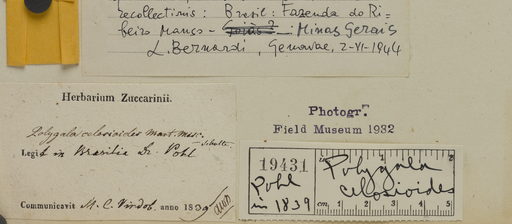 recollectinis: Brasil: Fazenda do Ri=
beiro Manso - Goiás? Minas Gerais
L. Bernardi, Genavae, 2-VI-1944
Herbarium Zuccarinii.
Polygala celosioides mart. msc.
Schult.
Legit in Brasilia Dr. Pohl
Communicavit M. C. Vindob. anno 1839
Photogr.
Field Museum 1932
19431
Pohl
in 1839
Polygala
celosioides
cm 1 2 3 4 5